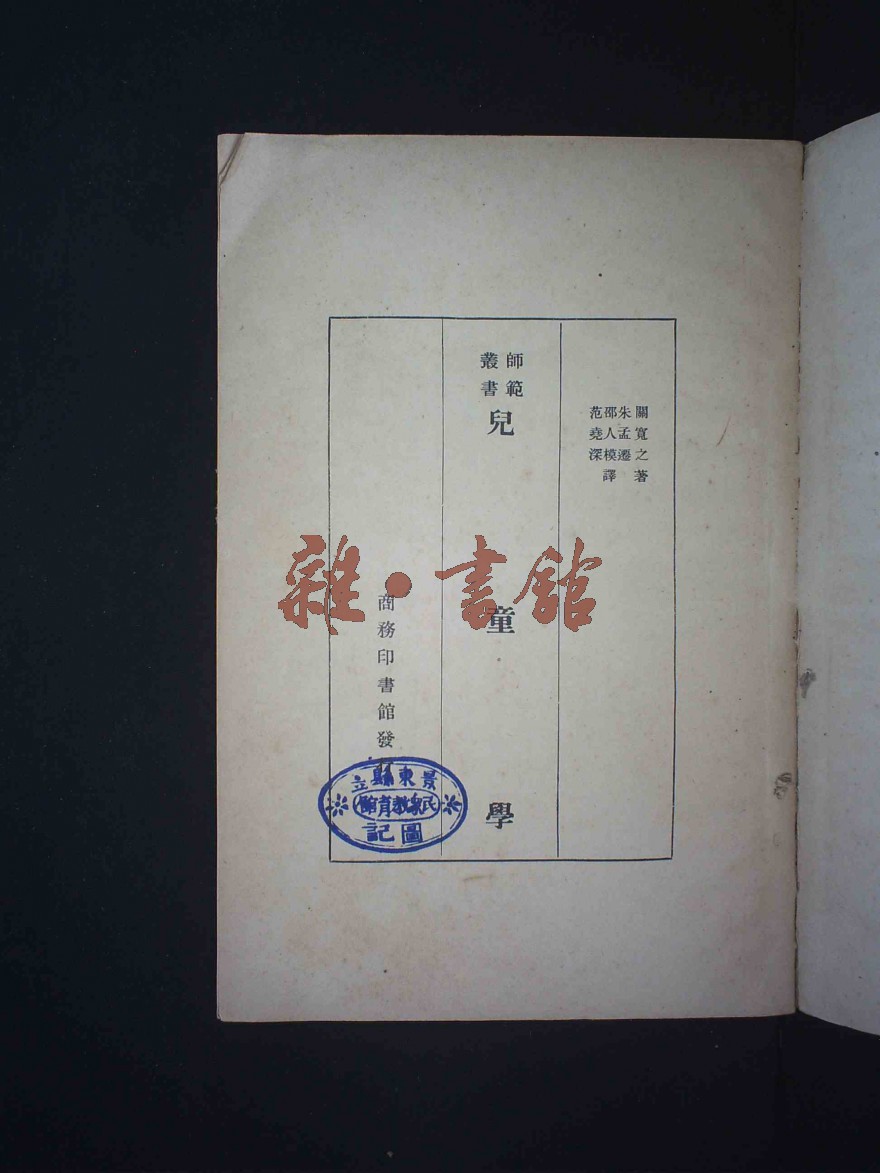 關寬之著
朱孟遷
邵人模譯
范堯深
師範
叢書
兒童學
商務印書館發行
景東縣立
民衆教育館
圖記
雜·書館